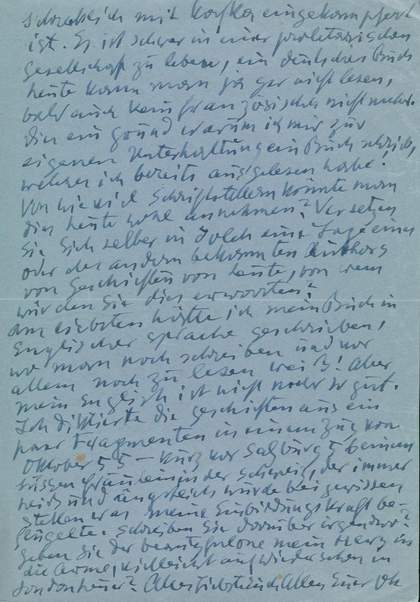 schrecklich mit Kafka eingekampfert
ist. Es ist schwer in einer proletarischen
Gesellschaft zu leben, ein deutsches Buch
heute kann man ja gar nicht lesen,
bald auch kein französisches nicht mehr.
ein Grund warum ich mir zur
eigenen Unterhaltung ein Buch schrieb,
welches ich bereits ausgelesen habe!
Von wie viel Schriftstellern könnte man
dies heute wohl annehmen? Versetzen
Sie sich selber in solch eine Lage eines
oder des andern bekannten Authors
von Geschichten von heute, von wem
würden Sie dies erwarten?
Am liebsten hätte ich mein Buch in
Englischer Sprache geschrieben,
wo man noch schreiben und vor
allem noch zu lesen weiß! Aber
mein Englisch ist nicht mehr so gut.
Ich diktierte die Geschichten aus ein
paar Fragmenten in einem Zug von
Oktober 55 – kurz vor Salzburg
Fräulein in der Schweiz, der immer
heiß und wurde bei gewissen
Stellen was meine Einbildungskraft be-
flügelte. Schreiben Sie darüber irgendwo?
Geben Sie der mein Herz in
die Arme, vielleicht auf Wiedersehen in
London heuer? Allen Euer Ok